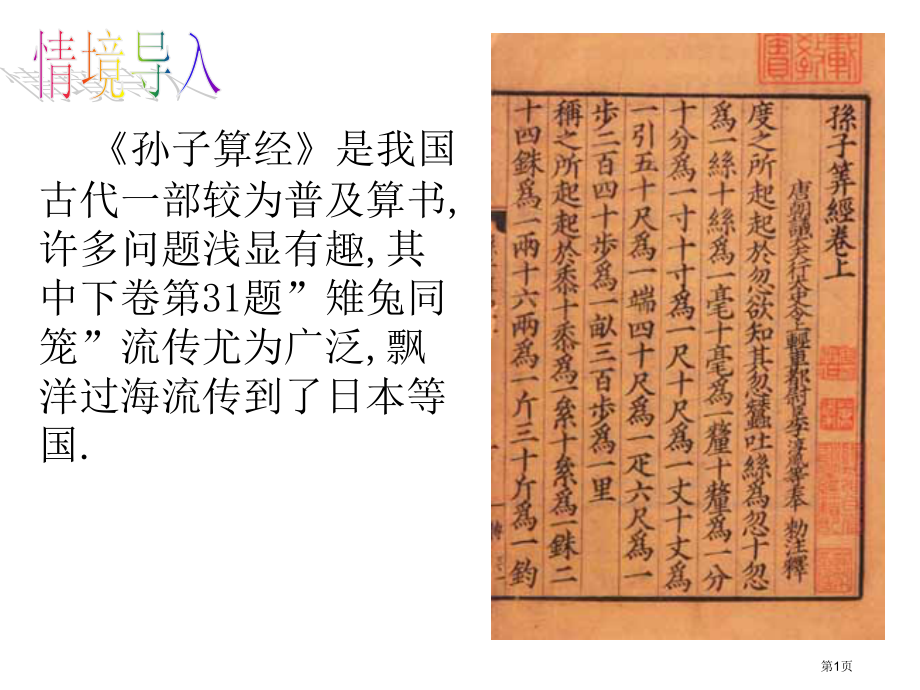 情境导入
《孙子算经》是我国
古代一部较为普及算书,
许多问题浅显有趣,其
中下卷第31题”雉兔同
笼”流传尤为广泛,飘
洋过海流传到了日本等
国.
孫子筭經卷上
唐朝議大夫行太史令上輕車都尉臣李淳風等奉 勑注釋
度之所起起於忽欲知其忽蠶吐絲為忽十忽
爲一絲十絲爲一毫十毫爲一釐十釐爲一分
十分爲一寸十寸爲一尺十尺爲一丈十丈爲
一引五十尺爲一端四十尺爲一疋六尺爲一
步二百四十步爲一畝三百步爲一里
稱之所起起於黍十黍爲一絫十絫爲一銖二
十四銖爲一兩十六兩爲一斤三十斤爲一鈞
第1页